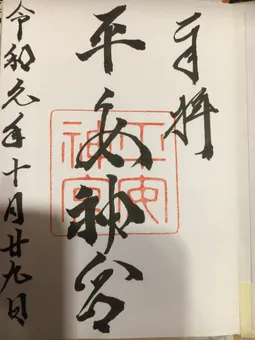 奉拝
平安神宮
平安神宮
令和元年十月廿九日